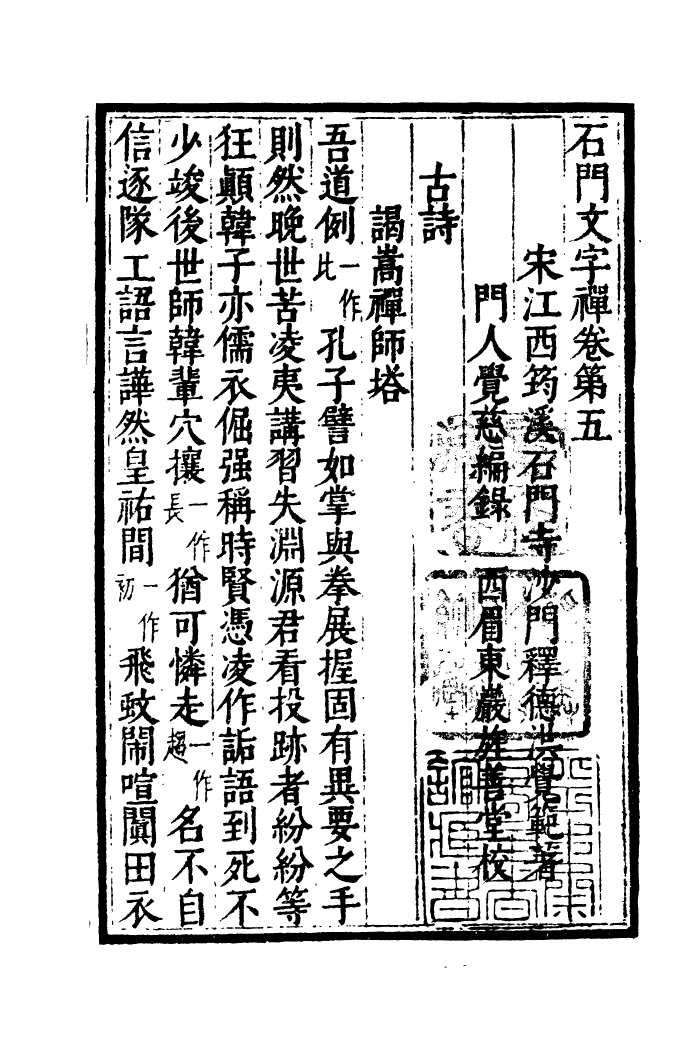 石門文字禪卷第五
宋江西筠溪石門寺沙門釋德洪覺範著
門人覺慈編錄　西眉東巖旌善堂校
古詩
謁嵩禪師塔
吾道例一作比孔子譬如掌與拳展握固有異要之手
則然晚世苦凌夷講習失淵源君看投跡者紛紛等
狂顛韓子亦儒衣倔强稱時賢憑凌作詬語到死不
少竣後世師韓輩穴攘一作長猶可憐走一作趨名不自
信逐隊工語言譁然皇祐間一作初飛蚊鬧喧闐田衣